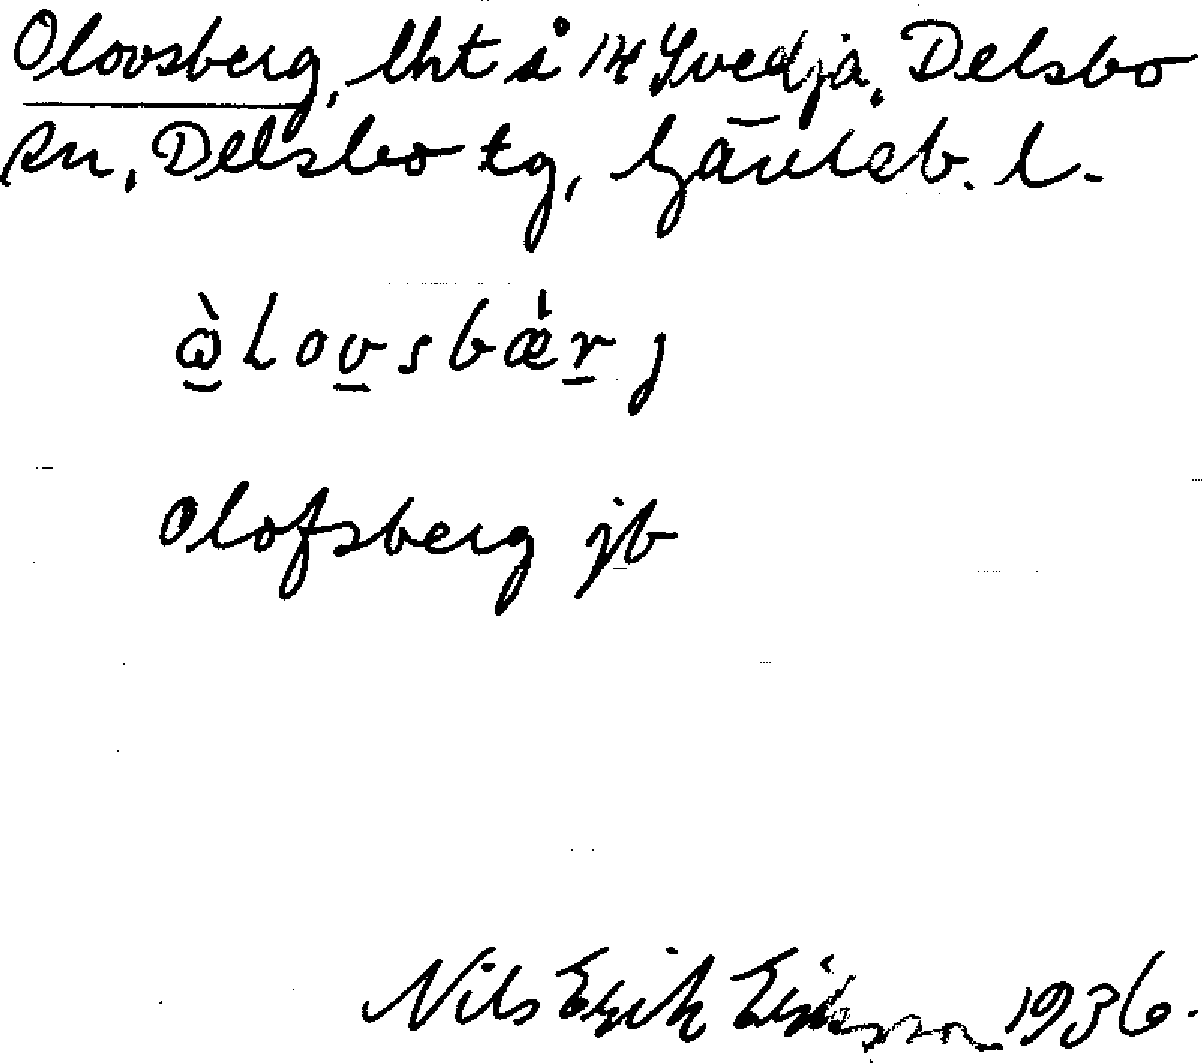 Olovsberg, lht å 14 Svedja, Delsbo
sn, Delsbo tg, Gävleb. l.
ὼLovsbǽrj
Olofsberg jb
Nils Erik Eriksson 1936.